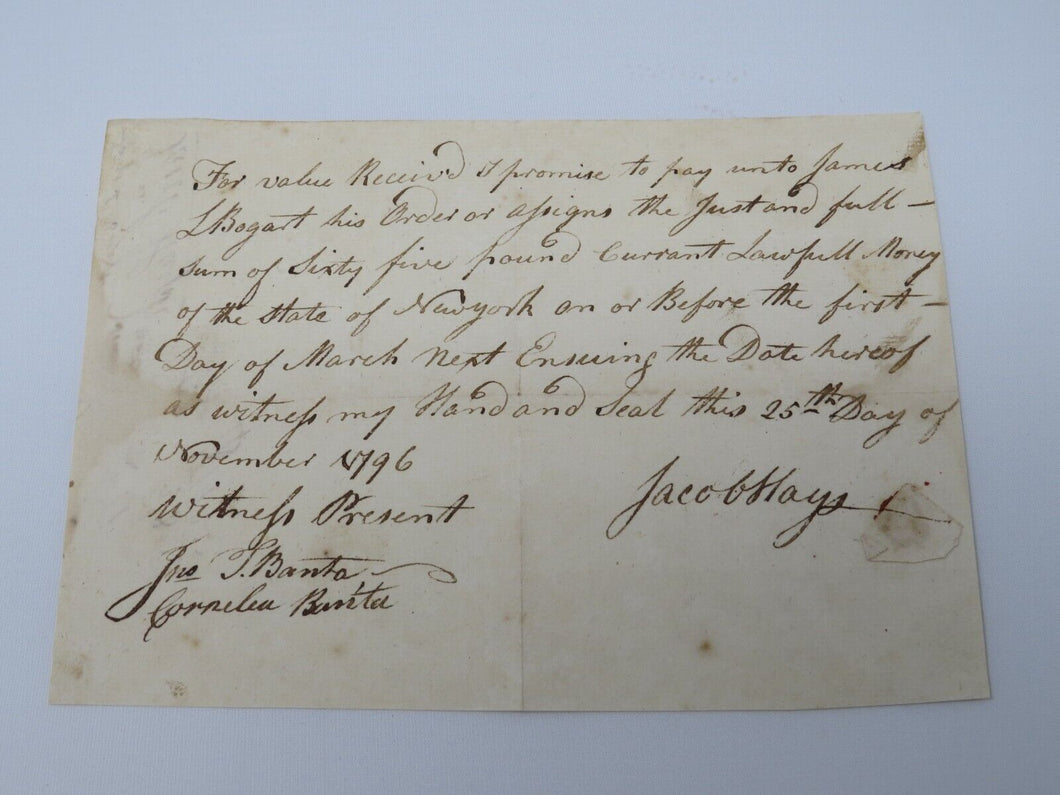 For value Receiv'd I promise to pay unto James
L Bogart his Order or assigns the Just and full –
sum of Sixty five pound Currant Lawfull Money
of the State of Newyork on or Before the first –
Day of March Next Ensuing the Date hereof
as witness my Hand and Seal this 25th Day of
November 1796
Witness Present
Jacob Hays
Jno T. Banta
Cornelia Banta